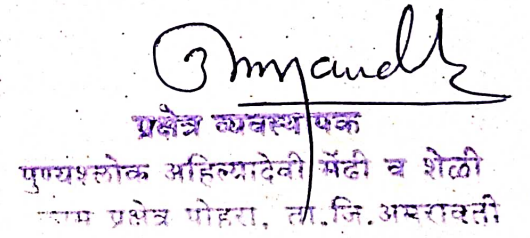 प्रक्षेत्र व्यवस्थापक
पुण्यश्लोक अहिल्यादेवी मेंढी व शेळी
प्रक्षेत्र पोहरा, ता.जि.अमरावती